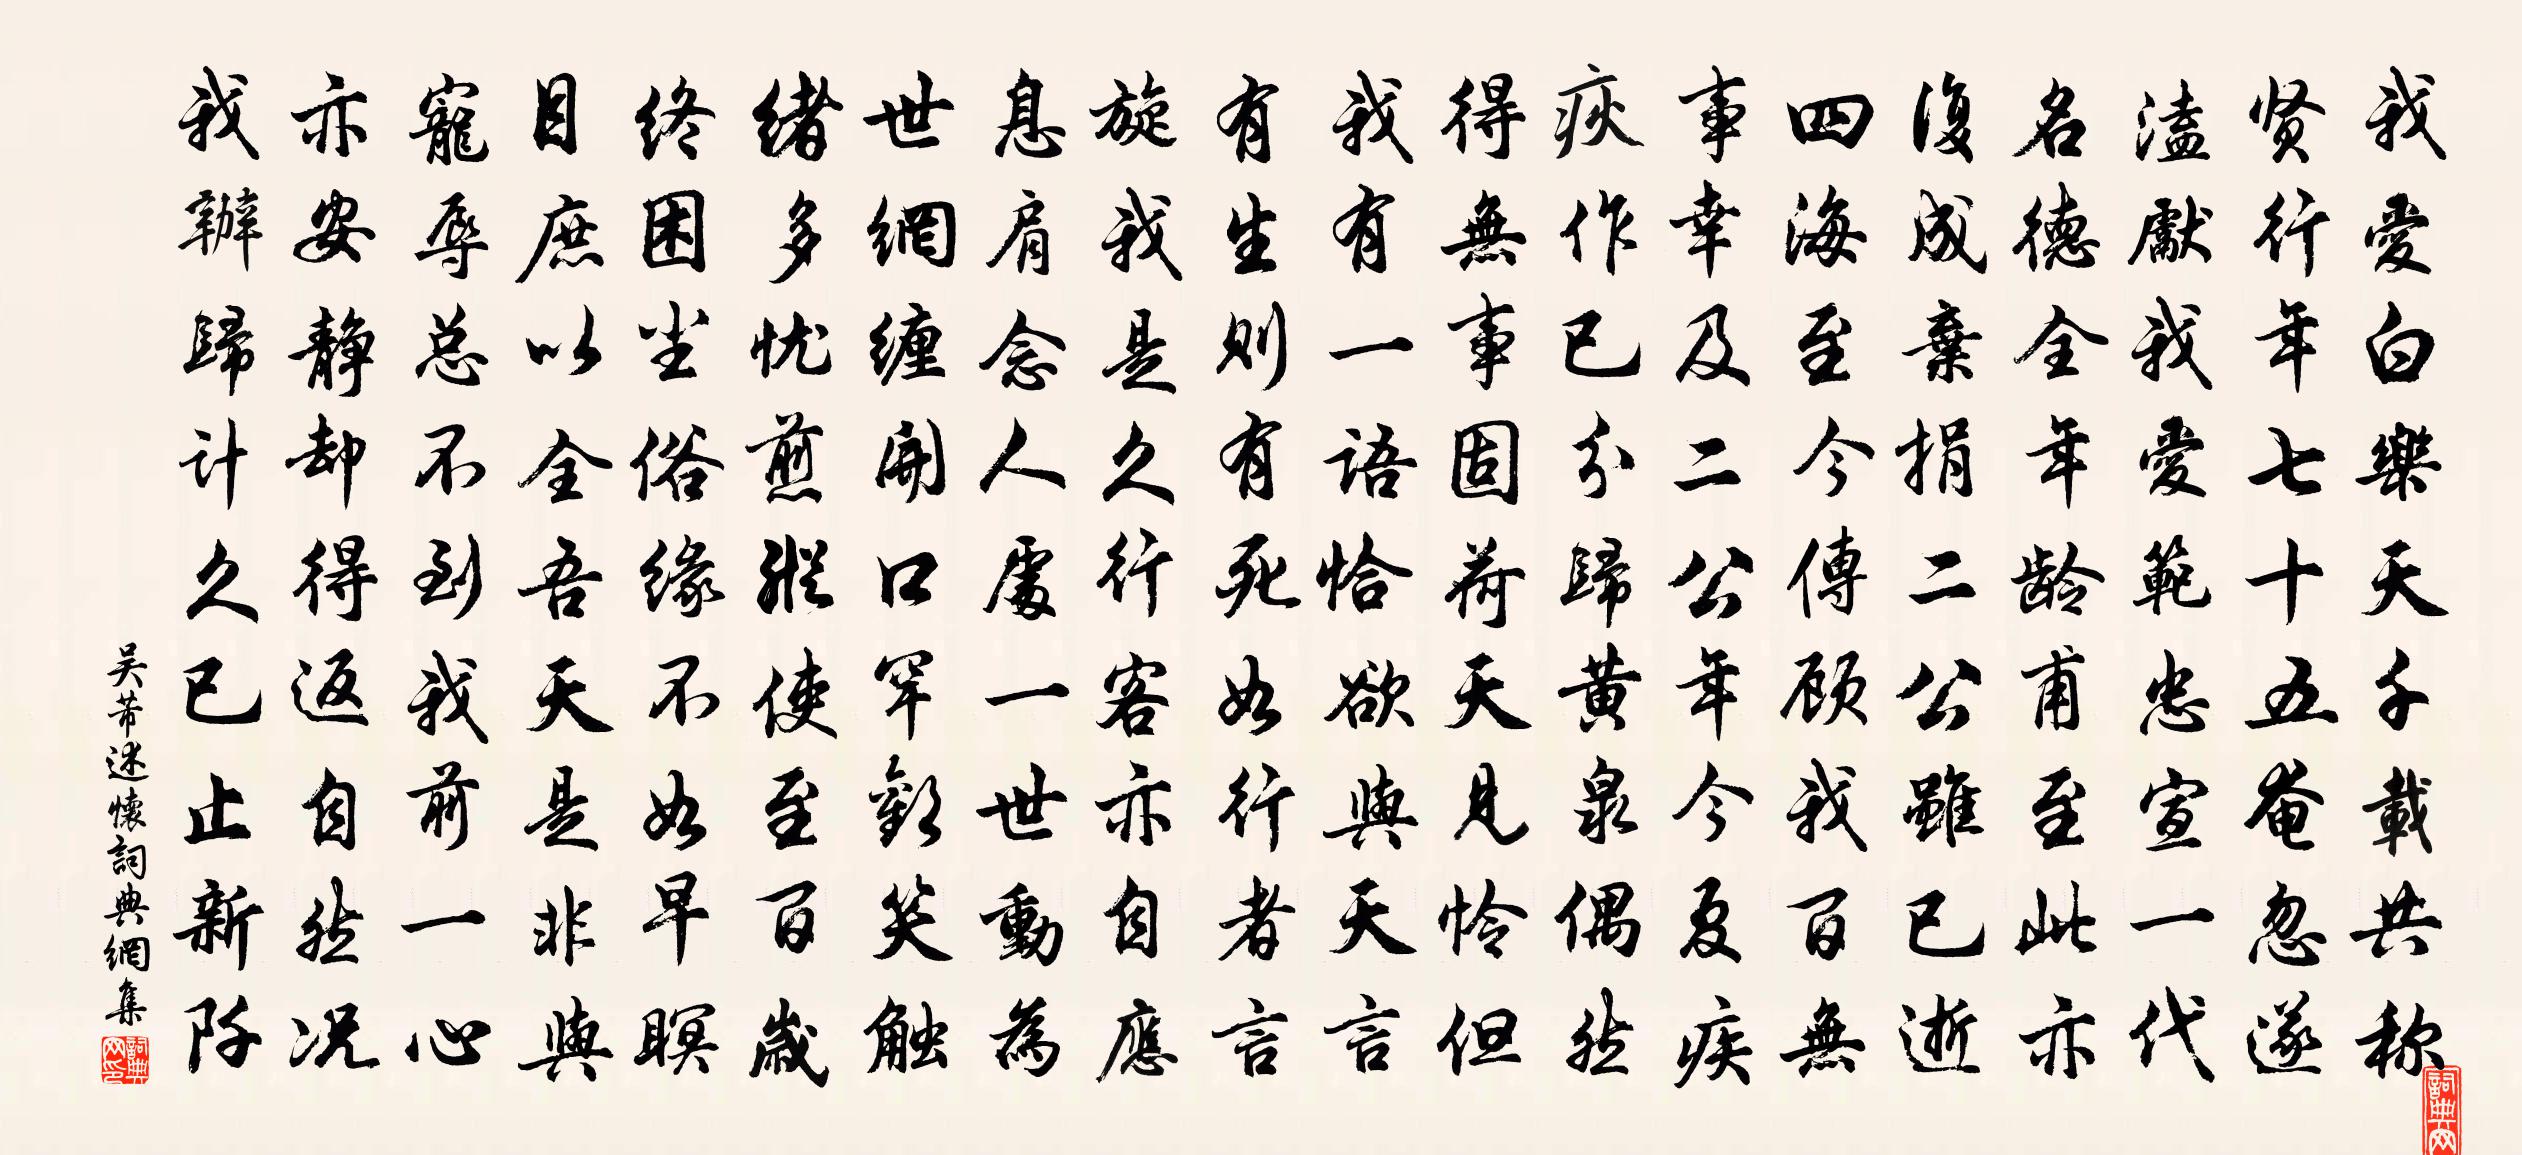 我愛白樂天千載共称
贤行年七十五奄忽遂
溘獻我愛範忠宣一代
名德全年龄甫至此亦
復成棄捐二公雖已逝
四海至今傳顾我百無
事幸及二公年今夏疾
疢作已分歸黄泉偶然
得無事固荷天見怜但
我有一語恰欲與天言
有生则有死如行者言
旋我是久行客亦自應
息肩念人處一世動為
世網缠開口罕歡笑触
绪多忧煎縱使至百歲
终困坐俗缘不如早瞑
目庶以全吾天是非與
寵辱总不到我前一心
亦安静却得返自然况
我辦歸计久已止新阡
吴芾述懷詞典網集
詞典网
詞典网